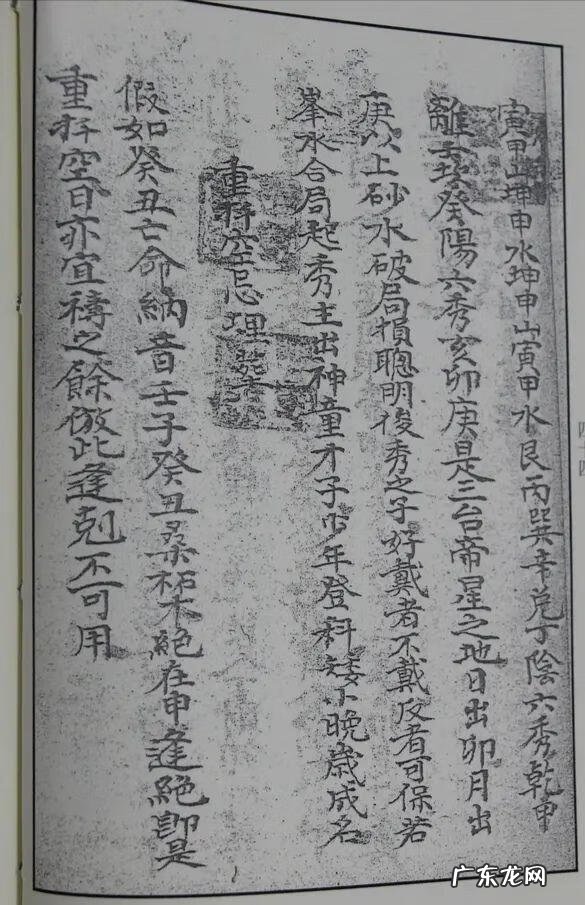 寅甲山坤申水坤申山寅甲水艮丙巽辛兌丁陰六秀乾甲
離壬癸陽六秀亥卯庚是三台帝星之地日出卯月出
庚以上砂水破局損聰明俊秀之子好戴者不戴反者可保若
峯水合局起秀主出神童才子少年登科矮小晚歲成名
重柩空忌埋葬
假如癸丑亡命納音壬子癸丑桑柘木絕在申逢絕即是
重柩空日亦宜禱之餘倣此逢剋不可用
四十四
广东龙网